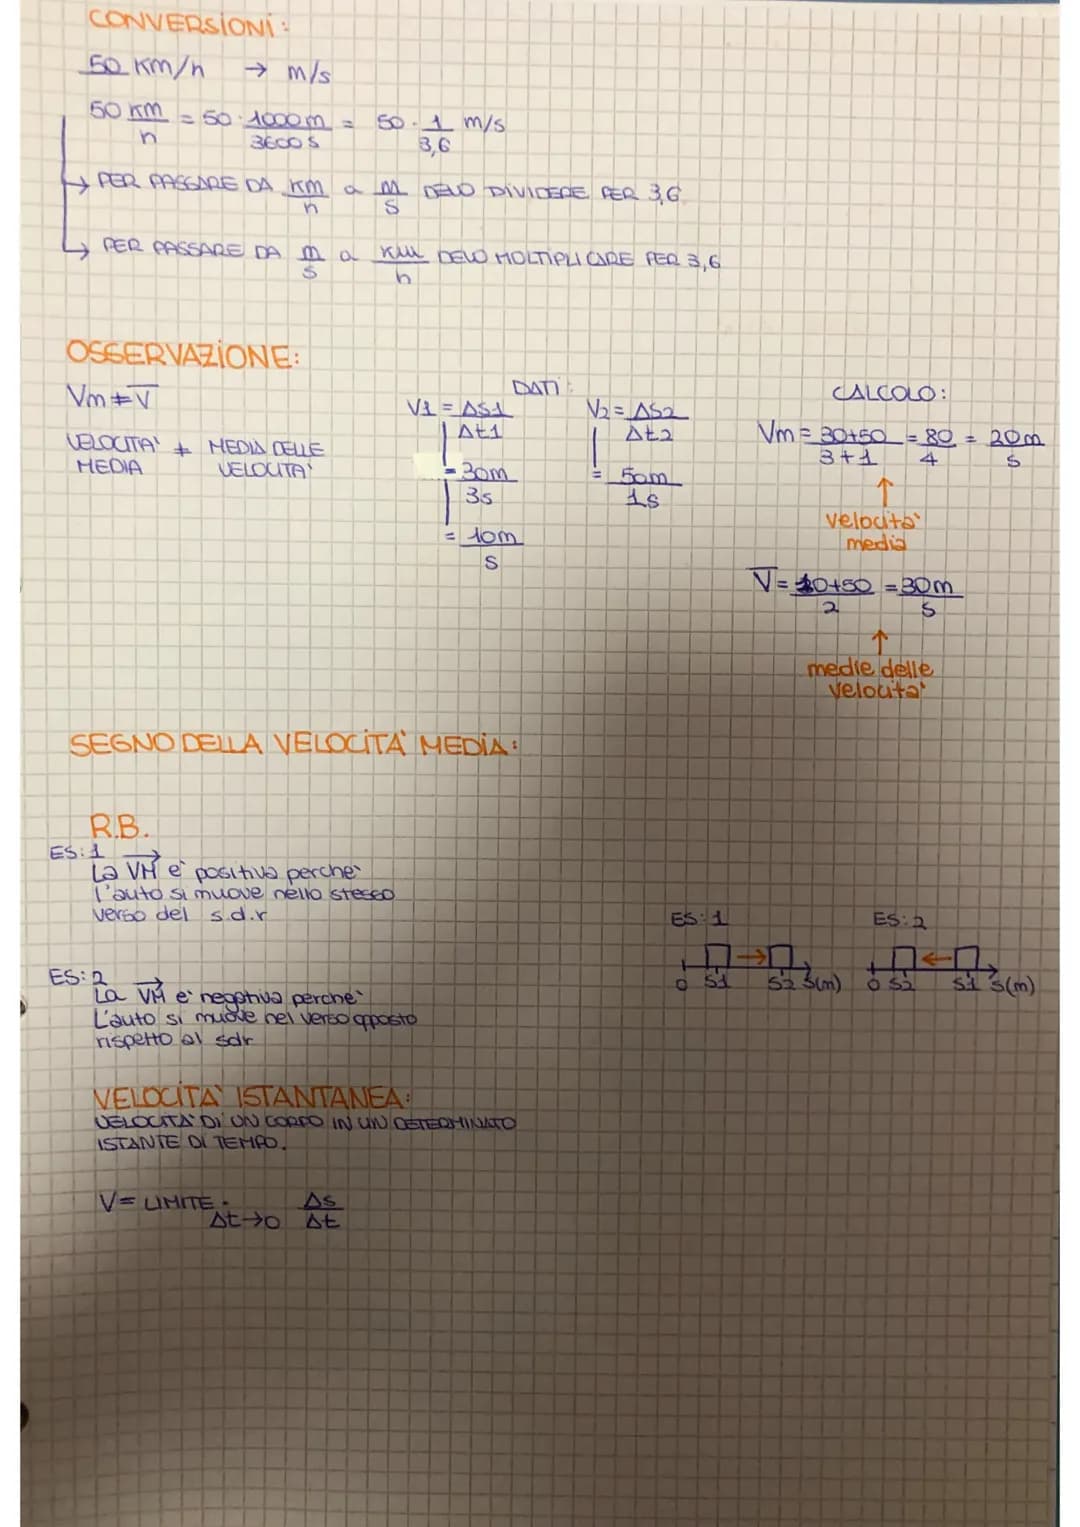 CONVERSIONI:
50 Km/h → m/s
50 Km/h = 50 · 1000m/3600s = 50 · 1/3,6 m/s
→ PER PASSARE DA Km/h a m/s DEVO DIVIDERE PER 3,6
→ PER PASSARE DA m/s a Km/h DEVO MOLTIPLICARE PER 3,6
OSSERVAZIONE:
Vm ≠ V̅
VELOCITA' ≠ MEDIA DELLE
MEDIA VELOCITA'
DATI:
V1 = ΔS1/Δt1
= 30m/3s
= 10m/s
V2 = ΔS2/Δt2
= 50m/1s
CALCOLO:
Vm = 30+50/3+1 = 80/4 = 20m/s
↑
velocita'
media
V̅ = 10+50/2 = 30m/s
↑
medie delle
velocita'
SEGNO DELLA VELOCITA' MEDIA:
R.B.
ES:1
La VM e' positiva perche'
l'auto si muove nello stesso
verso del s.d.r
ES:2
La VM e' negativa perche'
L'auto si muove nel verso opposto
rispetto al sdr
ES:1
0 S1 S2 S(m)
ES:2
0 S2 S1 S(m)
VELOCITA' ISTANTANEA:
VELOCITA' DI UN CORPO IN UN DETERMINATO
ISTANTE DI TEMPO.
V = LIMITE Δt→0 Δs/Δt